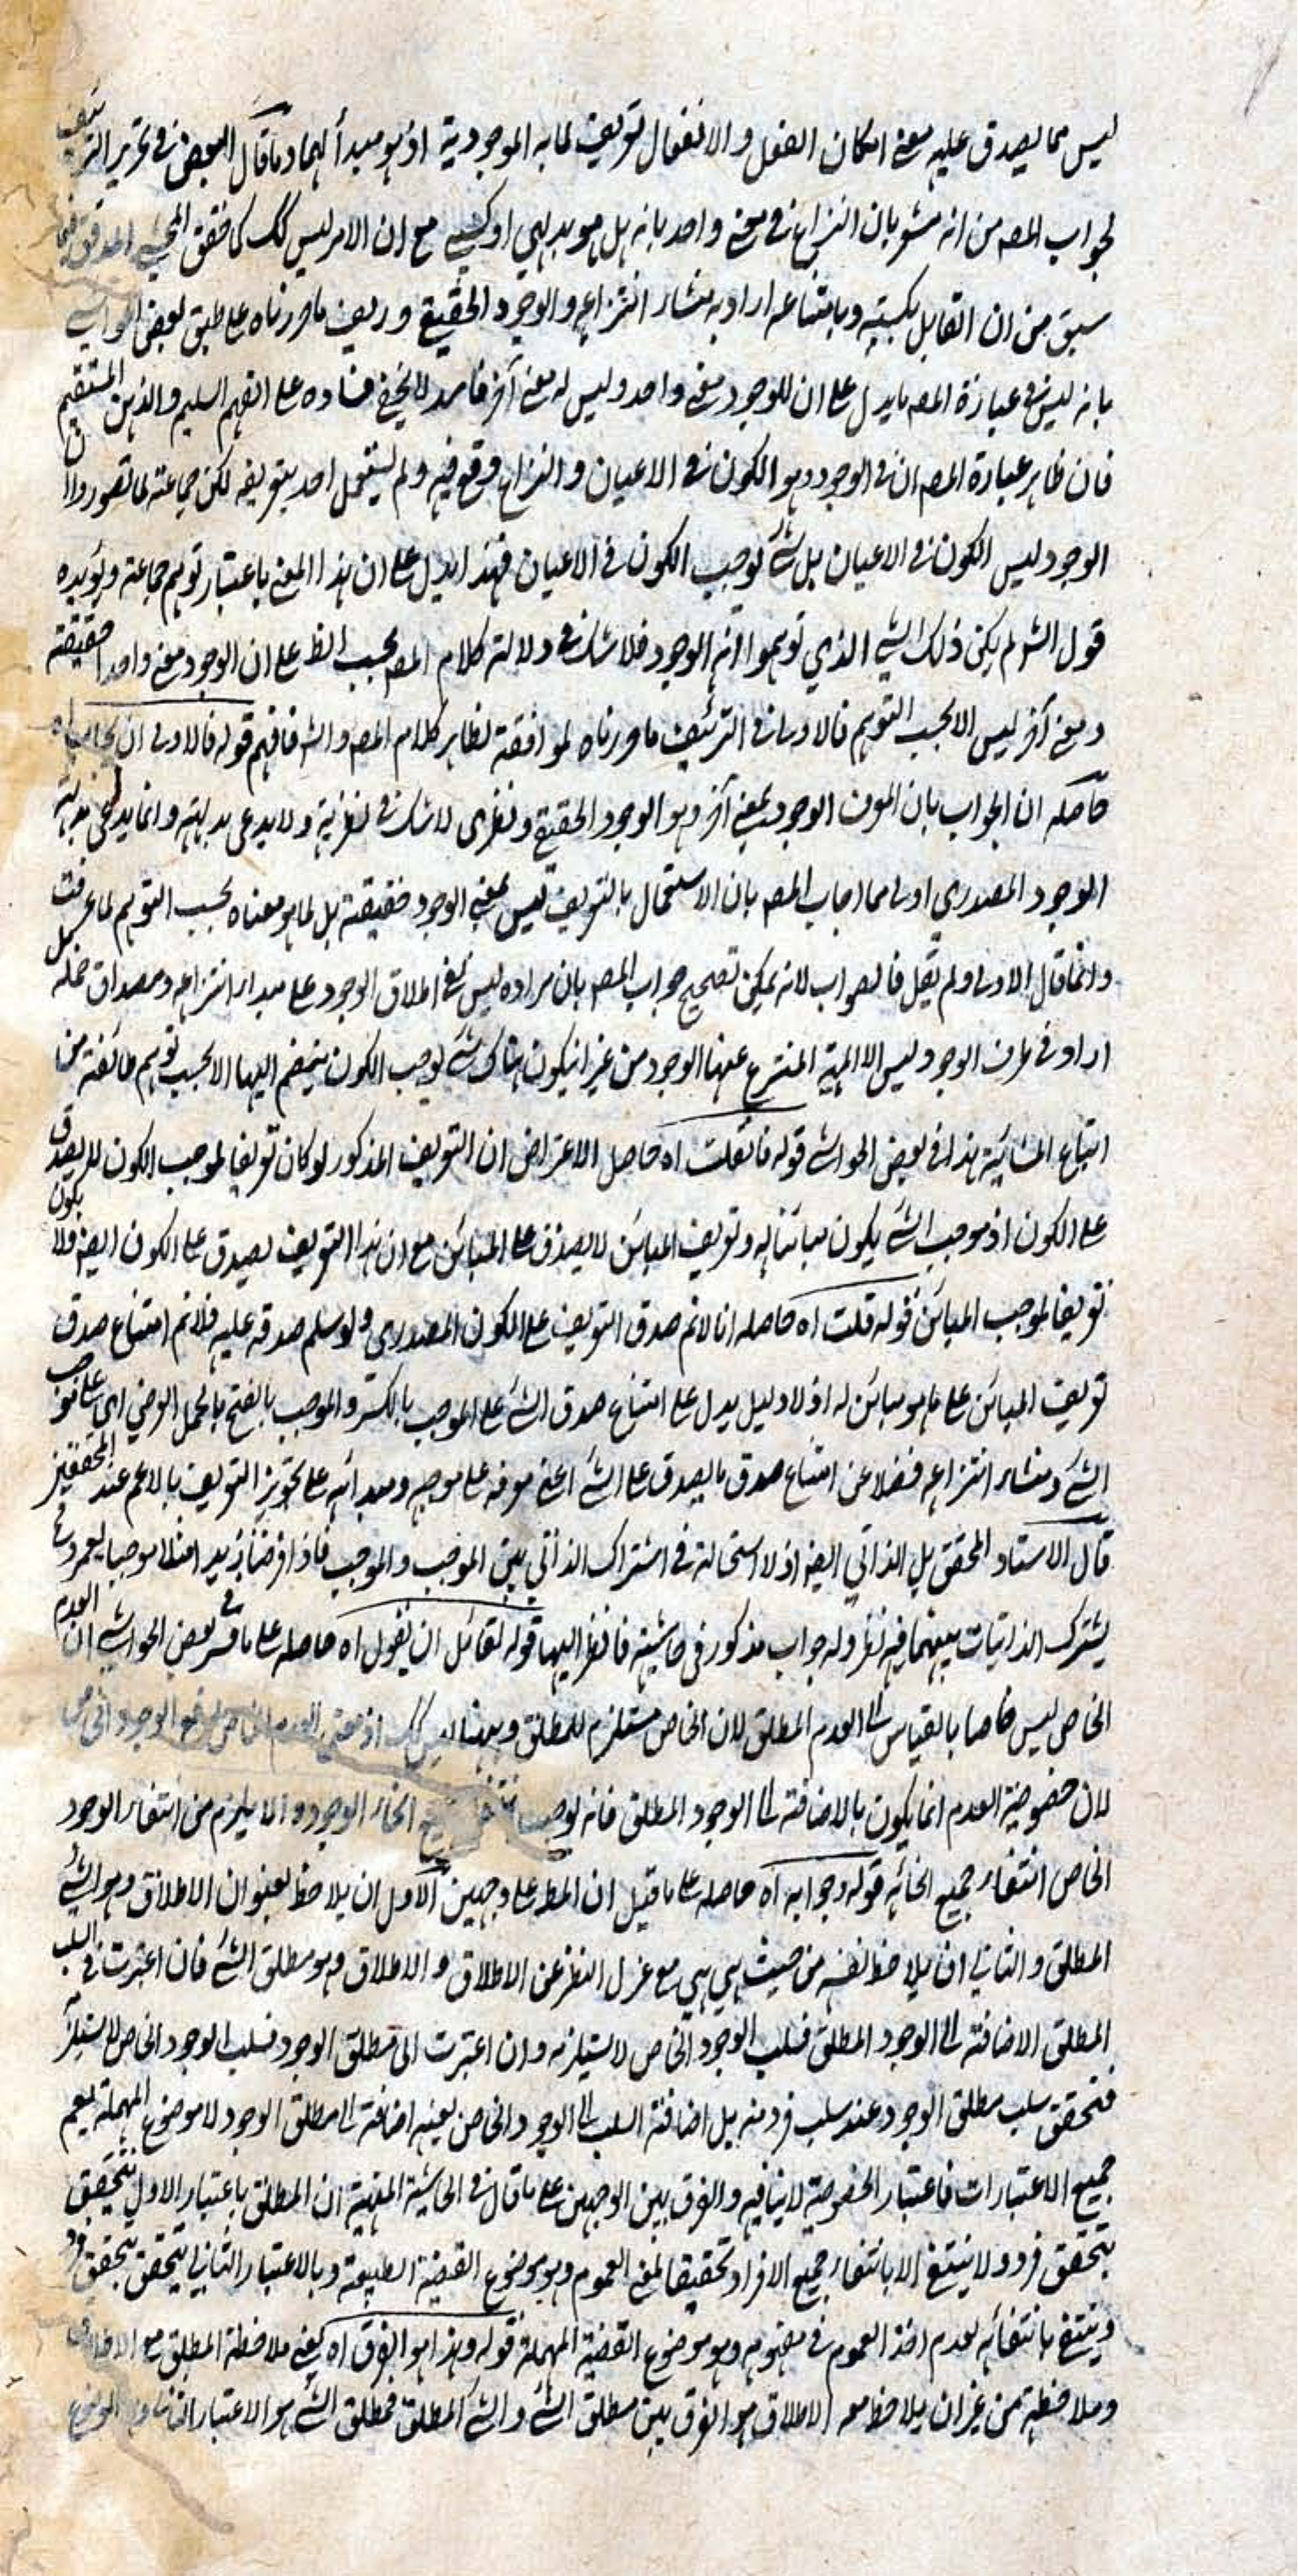 ليس مما يصدق عليه معنى امكان الفعل والانفعال تعريف لما به الموجودية اذ هو مبدأ لهما وما قال البعض في تحرير التزييف
لجواب المصـ من انه مشعر بان النزاع في معنى واحد بانه بل هو بديهي او كسبي مع ان الامر ليس كك كما حقق المحشي المدقق فيما
سبق من ان القايل بكسبيته وبامتناعه اراد به منشاء انتزاعه والوجود الحقيقي وزيف ما قررناه على طبق بعض الحواشي
بانه ليس في عبارة المصـ ما يدل على ان للوجود معنى واحد وليس له معنى آخر فاسد لا يخفى فساده على الفهم السليم والذهن المستقيم
فان ظاهر عبارة المصـ ان في الوجود وهو الكون في الاعيان والنزاع وقع فيه ولم يشتغل احد بتعريفه لكن جماعة لما تصوروا ان
الوجود ليس الكون في الاعيان بل شئ يوجب الكون في الاعيان فهذا يدل على ان هذا المعنى باعتبار توهم جماعة ويؤيده
قول الشـ لم يكن ذلك الشئ الذي توهموا انه الوجود فلا شك في دلالة كلام المصـ بحسب الظـ على ان الوجود معنى واحدا حقيقة
ومعنى آخر ليس الا بحسب التوهم فالاولى في التزييف ما قررناه لموافقة لظاهر كلام المصـ والشـ فافهم قوله فالاولى ان يجاب اه
حاصله ان الجواب بان المعرف الوجود بمعنى آخر وهو الوجود الحقيقي ونظرى لا شك في نظريته ولا يدعى بديهته وانما يدعى بديهة
الوجود المصدري اولى مما اجاب المصـ بان الاشتغال بالتعريف ليس لمعنى الوجود حقيقة بل لما هو معناه بحسب التوهم لما عرفت
وانما قال الاولى ولم يقل فالصواب لانه يمكن تصحيح جواب المصـ بان مراده ليس نفى اطلاق الوجود على مبداء انتزاعه ومصداق حمله بل
اراد في ظرف الوجود ليس الا المهية المنتزع عنها الوجود من غير ان يكون هناك شئ يوجب الكون ينضم اليها الا بحسب توهم طائفة من
اتباع المشائية هذا في بعض الحواشي قوله فان قلت اه حاصل الاعتراض ان التعريف المذكور لو كان تعريفا لموجب الكون لم يصدق
على الكون اذ موجب الشئ يكون مباينا له وتعريف المباين لا يصدق على المباين مع ان هذا التعريف يصدق على الكون ايضا ولا يكون
تعريفا لموجب المباين قوله قلت اه حاصله انا لا نم صدق التعريف على الكون المصدري ولو سلم صدقه عليه فلا نم امتناع صدق
تعريف المباين على ما هو مباين له اذ لا دليل يدل على امتناع صدق الشئ على الموجب بالكسر والموجب بالفتح بالحمل العرضي اى على موجب
الشئ ومنشاء انتزاعه فضلا عن امتناع صدق ما يصدق على الشئ اعنى معرفه على موجبه ومبدائه على تجويز التعريف بالاعم عند المحققين
قال الاستاد المحقق بل الذاتي ايضا اذ لا استحالة في اشتراك الذاتي بين الموجب والموجب فاذا فرضنا زيد مثلا موجبا لعمرو
يشترك الذاتيات بينهما فيه نظر وله جواب مذكور في حاشيته فانظر اليها قوله لقائل ان يقول اه حاصله على ما في بعض الحواشي ان العدم
الخاص ليس خاصا بالقياس الى العدم المطلق لان الخاص مستلزم للمطلق وههنا ليس كك اذ معنى العدم الخاص رفع الوجود الخاص
لان خصوصية العدم انما يكون بالاضافة الى الوجود المطلق فانه يوجب انحاء الوجود ولا يلزم من انتفاء الوجود
الخاص انتفاء جميع انحائه قوله وجوابه اه حاصله على ما قيل ان المطـ على وجهين الاول ان يلاحظ بعنوان الاطلاق وهو الشئ
المطلق والثاني ان يلاحظ نفسه من حيث هي هي مع عزل النظر عن الاطلاق و الاطلاق وهو مطلق الشئ فان اعتبرت في السلب
المطلق الاضافة الى الوجود المطلق فسلب الوجود الخاص لا يستلزمه وان اعتبرت الى مطلق الوجود فسلب الوجود الخاص يستلزم
فتحقق سلب مطلق الوجود عند سلب فرد منه بل اضافة السلب الى الوجود الخاص بعينه اضافة الى مطلق الوجود لا موضوع المهملة يعم
جميع الاعتبارات فاعتبار الخصوصية لا ينافيه والفرق بين الوجهين على ما قال في الحاشية المنهية ان المطلق باعتبار الاول يتحقق
بتحقق فرد ولا ينتفى الا بانتفاء جميع الافراد تحقيقا لمعنى العموم وهو موضوع القضية الطبيعية وبالاعتبار الثاني يتحقق بتحقق فرد
وينتفى بانتفائه لعدم اخذ العموم في مفهومه وهو موضوع القضية المهملة قوله وهذا هو الفرق اه يعنى ملاحظة المطلق مع الاطلاق
وملاحظته من غير ان يلاحظ معه الاطلاق هو الفرق بين مطلق الشئ والشئ المطلق فمطلق الشئ هو الاعتبار الثاني